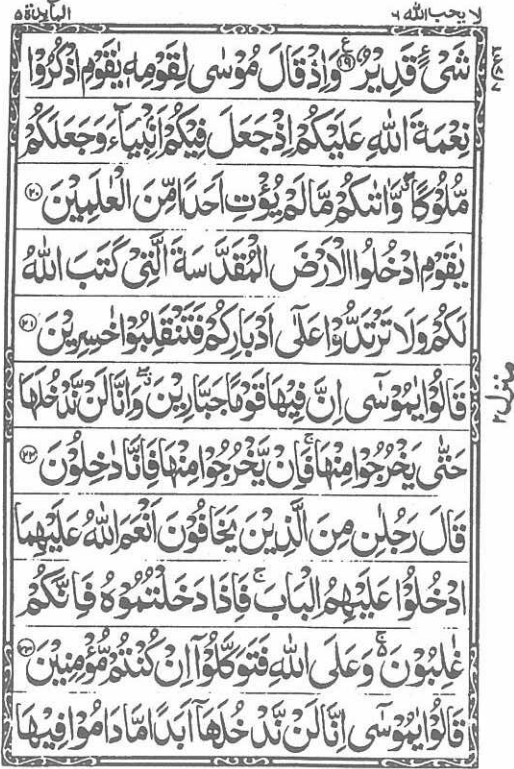 لا يحب الله ٦
المآئدة ٥
شَىْءٍ قَدِيْرٌ ﴿١٩﴾ وَاِذْ قَالَ مُوْسٰى لِقَوْمِهٖ يٰقَوْمِ اذْكُرُوْا
نِعْمَةَ اللّٰهِ عَلَيْكُمْ اِذْ جَعَلَ فِيْكُمْ اَنْۢبِيَآءَ وَجَعَلَكُمْ
مُّلُوْكًا ۖ وَّاٰتٰىكُمْ مَّا لَمْ يُؤْتِ اَحَدًا مِّنَ الْعٰلَمِيْنَ ﴿٢٠﴾
يٰقَوْمِ ادْخُلُوا الْاَرْضَ الْمُقَدَّسَةَ الَّتِىْ كَتَبَ اللّٰهُ
لَكُمْ وَلَا تَرْتَدُّوْا عَلٰٓى اَدْبَارِكُمْ فَتَنْقَلِبُوْا خٰسِرِيْنَ ﴿٢١﴾
قَالُوْا يٰمُوْسٰٓى اِنَّ فِيْهَا قَوْمًا جَبَّارِيْنَ ۖ وَاِنَّا لَنْ نَّدْخُلَهَا
حَتّٰى يَخْرُجُوْا مِنْهَا ۚ فَاِنْ يَّخْرُجُوْا مِنْهَا فَاِنَّا دٰخِلُوْنَ ﴿٢٢﴾
قَالَ رَجُلٰنِ مِنَ الَّذِيْنَ يَخَافُوْنَ اَنْعَمَ اللّٰهُ عَلَيْهِمَا
ادْخُلُوْا عَلَيْهِمُ الْبَابَ ۚ فَاِذَا دَخَلْتُمُوْهُ فَاِنَّكُمْ
غٰلِبُوْنَ ۚ۬ وَعَلَى اللّٰهِ فَتَوَكَّلُوْٓا اِنْ كُنْتُمْ مُّؤْمِنِيْنَ ﴿٢٣﴾
قَالُوْا يٰمُوْسٰٓى اِنَّا لَنْ نَّدْخُلَهَآ اَبَدًا مَّا دَامُوْا فِيْهَا
منزل ٢